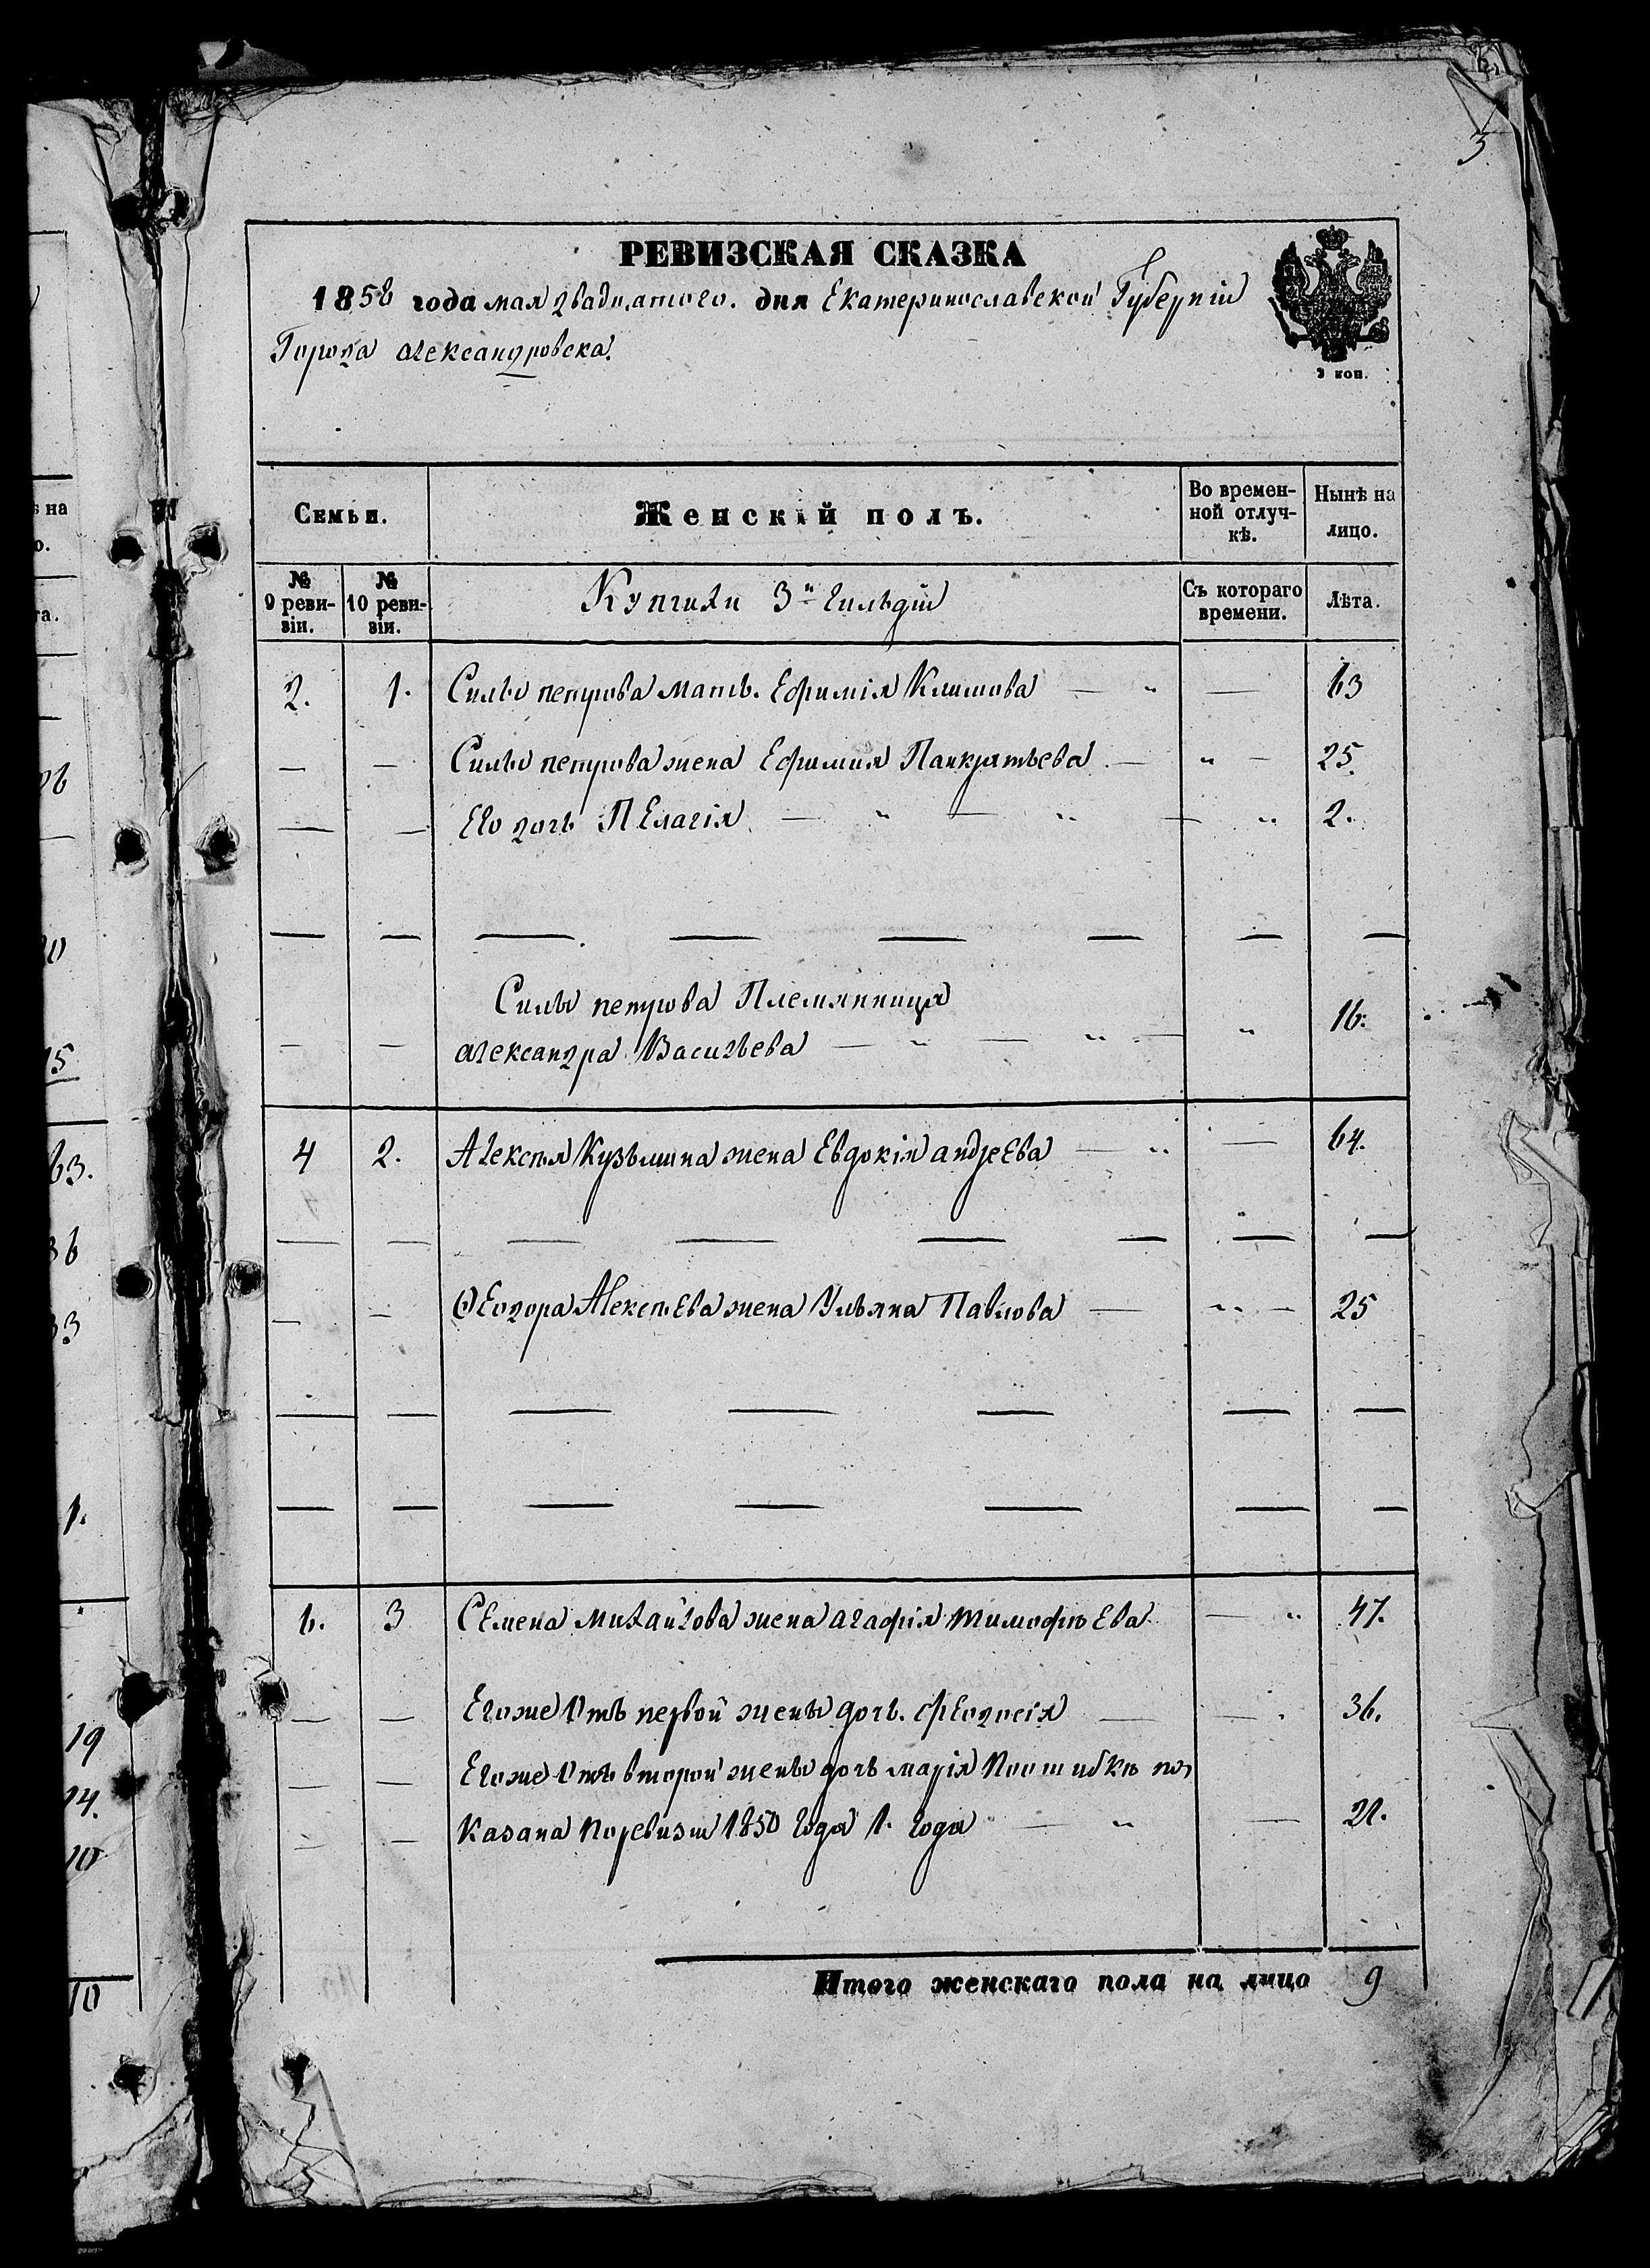 3
РЕВИЗСКАЯ СКАЗКА
1858 года мая двадцатого. дня Екатеринославской Губерніи
Города александровска.
3 коп.
Семьи. Женскій полъ. Во времен-ной отлуч-кѣ. Нынѣ на лицо.
№ 9 реви-зіи. № 10 реви-зіи. Купчихи 3й гильдіи Съ котораго времени. Лѣта.
2. 1. Силы петрова мать. Ефимія Климова — „ — 63
— — Силы петрова жена Ефимия Панкратьева — „ — 25.
— — Его дочь ПЕлагія — „ — „ — „ 2.
— — — — — — — —
Силы петрова Племянница
— — александра Васильева — „ — „ — „ 16.
4 2. Алексѣя Кузьмина жена Евдокія андреЕва — „ — 64.
— — — — — — — —
— — ѲЕодора АлексѣЕва жена Ульяна Павлова — „ — 25
— — — — — — —
— — — — — — —
6. 3 СЕмена михайлова жена агафія тимофѣЕва — „ 47.
— — Егоже Отъ первой жены дочь. фЕодосія — — . 36.
— — Егоже Отъ второй жены дочь марія Поошибкѣ по
— — казана Поревизіи 1850 года 1. года — „ — 22.
Итого женскаго пола на лицо 9